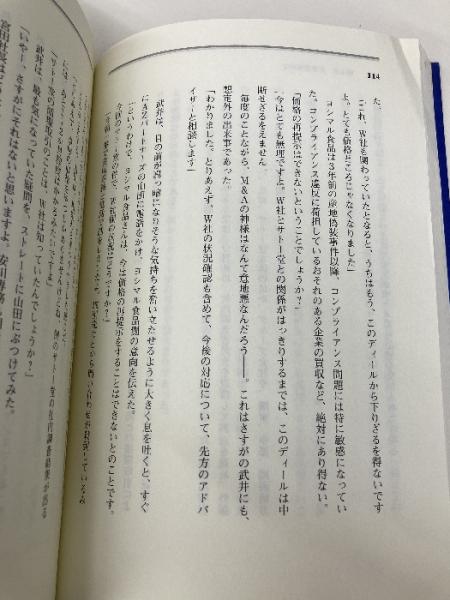 114
た。
「これ、W社も関わっていたとなると、うちはもう、このディールから下りざるを得ないです
よ。とても価格どころじゃなくなりました」
ヨシマル食品は3年前の産地偽装事件以降、コンプライアンス問題には特に敏感になってい
た。コンプライアンス違反に荷担しているおそれのある企業の買収など、絶対にあり得ない。
「価格の再提示はできないということでしょうか？」
「今はとても無理ですよ。W社とサトー堂との関係がはっきりするまでは、このディールは中
断せざるをえません」
毎度のことながら、M&Aの神様はなんて意地悪なんだろう――。これはさすがの武井にも、
想定外の出来事であった。
「わかりました。とりあえず、W社の状況確認も含めて、今後の対応について、先方のアドバ
イザーと相談します」
武井は、目の前が真っ暗になりそうな気持ちを奮い立たせるように大きく息を吐くと、すぐ
にAZパートナーズの山田に電話をかけ、ヨシマル食品側の意向を伝えた。
「というわけで、ヨシマル食品さんは、今は価格の再提示をすることはできないとのことです。
武井は、最も気になった疑問を、ストレートに山田にぶつけてみた。
「いやー、さすがにそれはないと思いますよ。